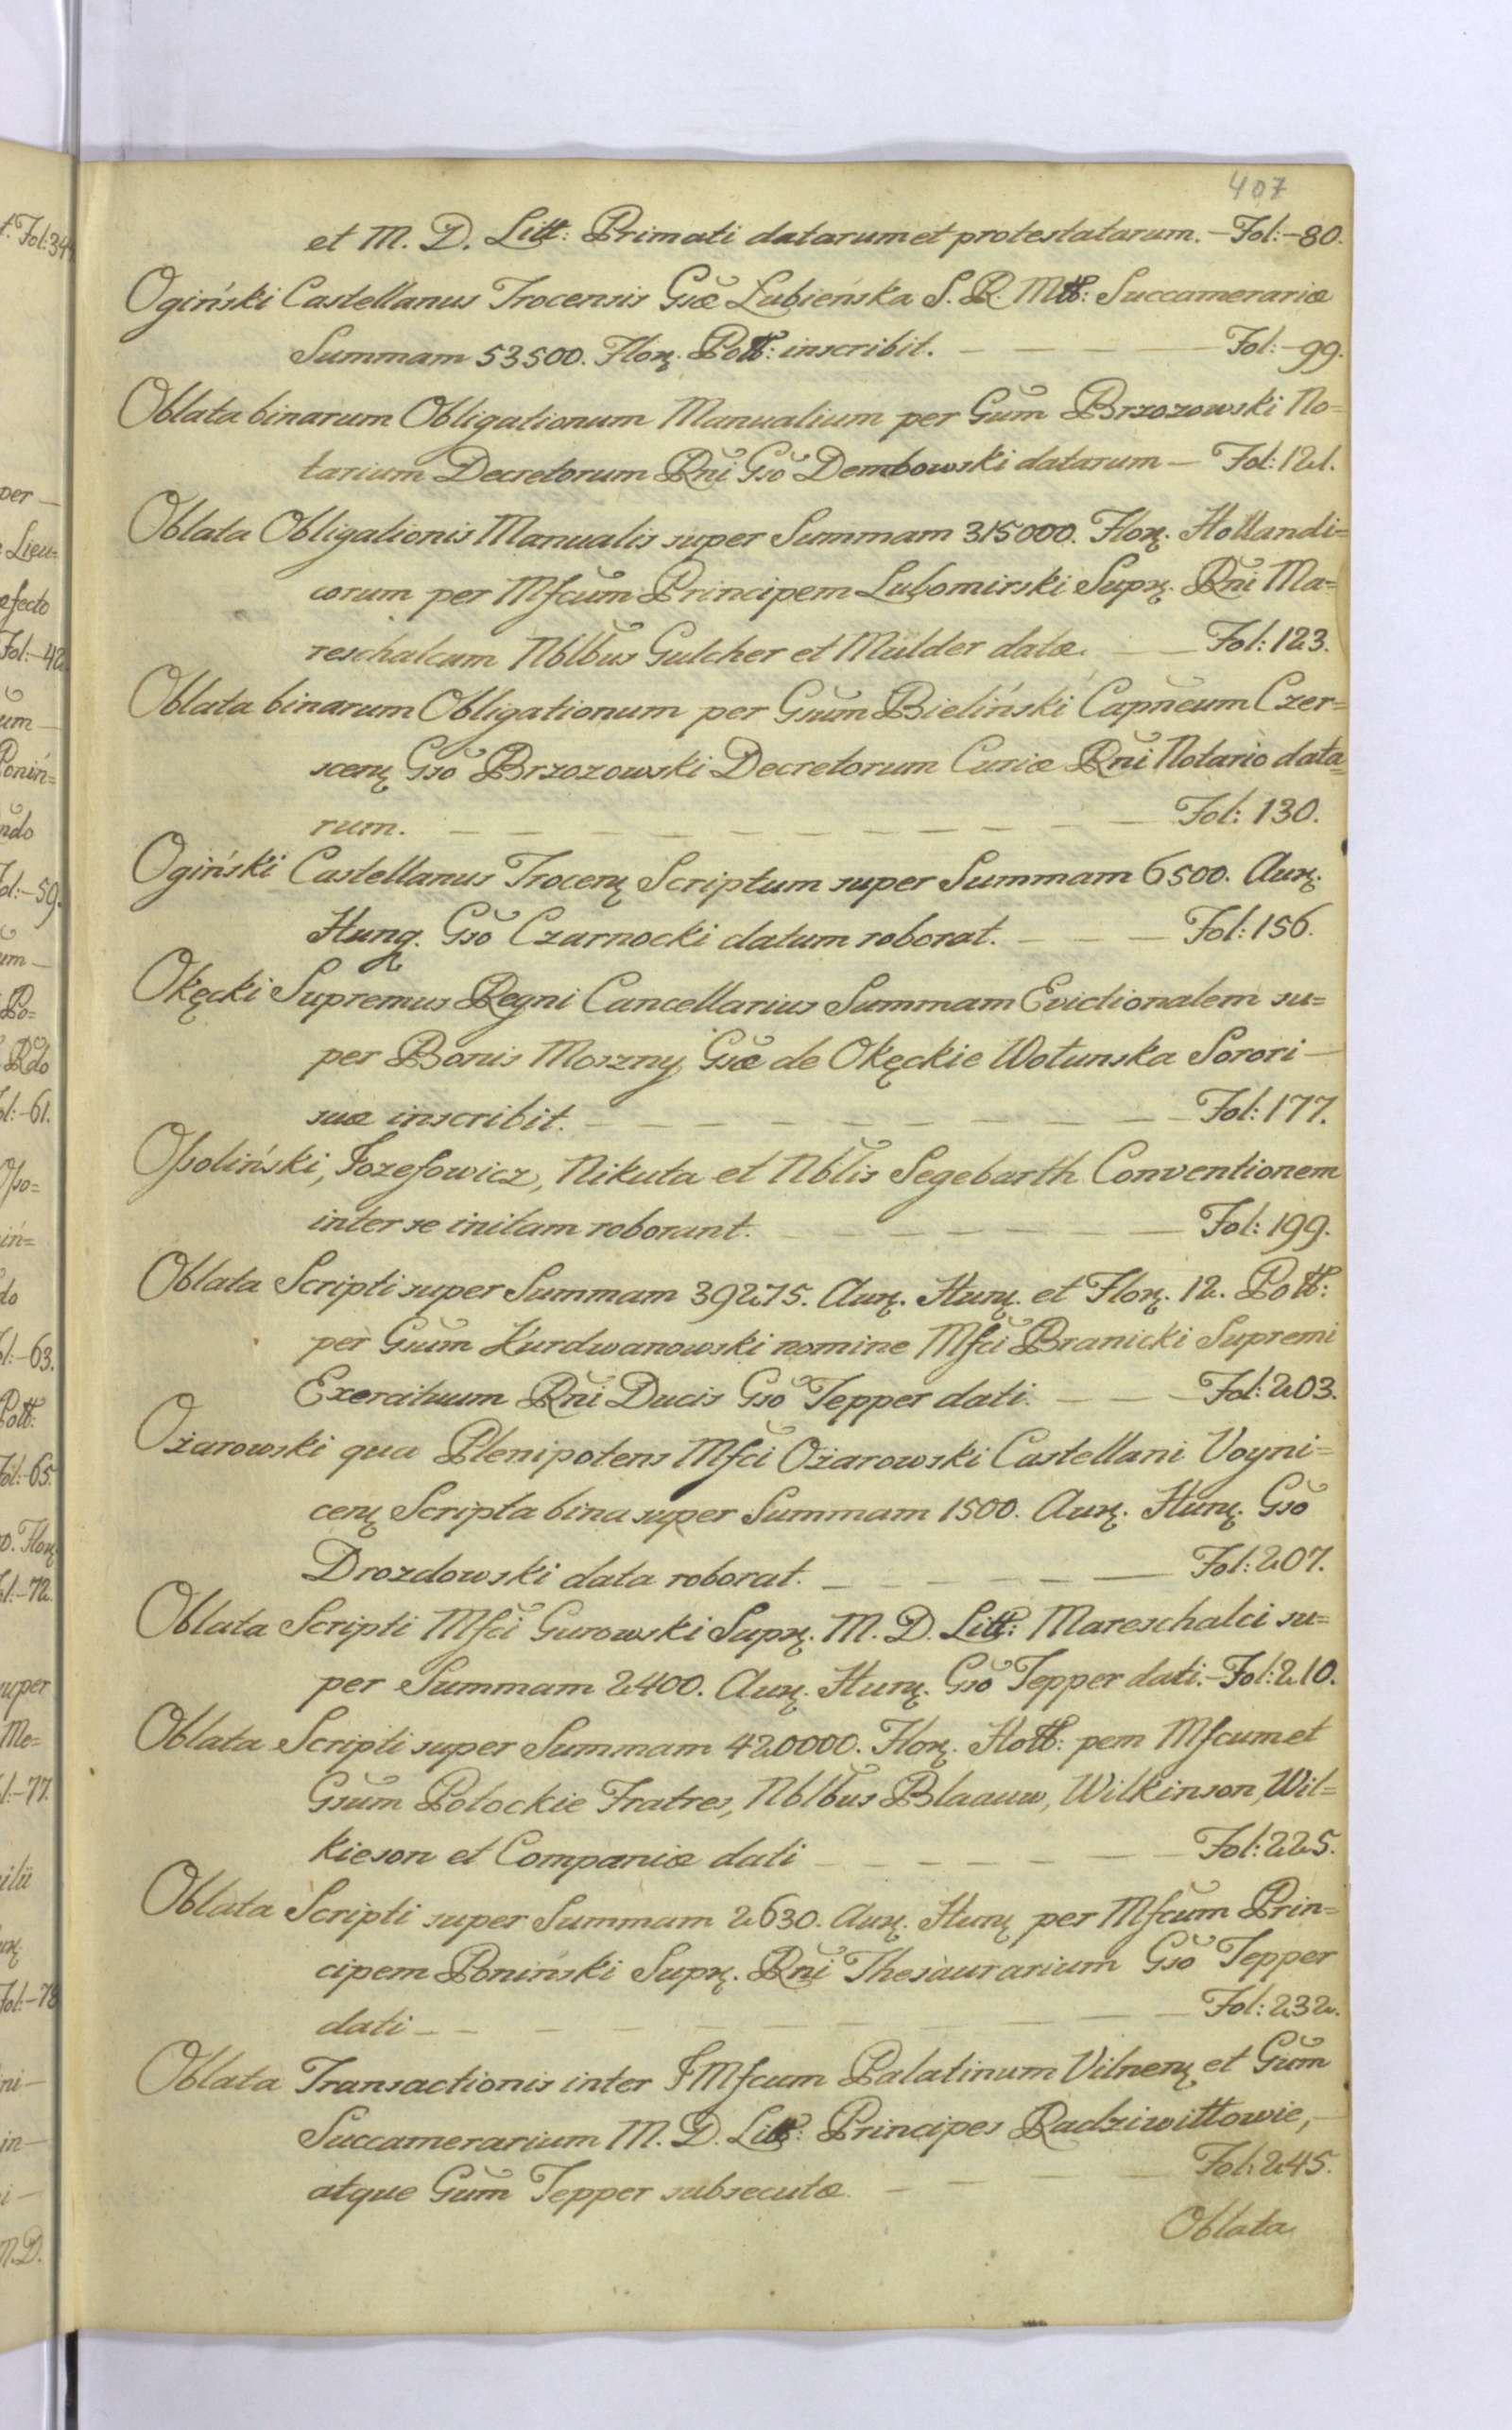 407
et M. D. Litt: Primati datarum et protestatarum. – Fol: – 80.
Ogiński Castellanus Trocensis Gsæ Łubieńska S. R. Mtt: Succamerariæ
Summam 53500. Flor. Poll: inscribit. — Fol: – 99.
Oblata binarum Obligationum Manualium per Gum Brzozowski No=
tarium Decretorum Rni Gso Dembowski datarum — Fol: 121.
Oblata Obligationis Manualis super Summam 315000. Flor. Hollandi=
corum per Mfcum Principem Lubomirski Supr. Rni Ma=
reschalcum Nblbus Gulcher et Mulder datæ. — Fol: 123.
Oblata binarum Obligationum per Gsum Bieliński Capneum Czer=
scen. Gso Brzozowski Decretorum Curiæ Rni Notario data=
rum. — Fol: 130.
Ogiński Castellanus Trocen. Scriptum super Summam 6500. Aur.
Hung. Gso Czarnocki datum roborat. — Fol: 156.
Okęcki Supremus Regni Cancellarius Summam Evictionalem su=
per Bonis Moszny Gsæ de Okęckie Wołunska Sorori —
suæ inscribit. — Fol: 177.
Opoliński, Jozefowicz, Nikuta et Nblis Segebarth Conventionem
inter se initam roborant. — Fol: 199.
Oblata Scripti super Summam 39275. Aur. Hun. et Flor. 12. Poll:
per Gsum Kurdwanowski nomine Mfci Branicki Supremi
Exercituum Rni Ducis Gso Tepper dati. — Fol: 203.
Ożarowski qua Plenipotens Mfci Ożarowski Castellani Voyni=
cen. Scripta bina super Summam 1500. Aur. Hun. Gso
Drozdowski data roborat. — Fol: 207.
Oblata Scripti Mfci Gurowski Supr. M. D. Litt: Mareschalci su=
per Summam 2400. Aur. Hun. Gso Tepper dati. – Fol: 210.
Oblata Scripti super Summam 420000. Flor. Holl: pem Mfcum et
Gsum Potockie Fratres, Nblbus Blaauw, Wilkinson, Wil=
kieson et Companiæ dati — Fol: 225.
Oblata Scripti super Summam 2630. Aur. Hun. per Mfcum Prin=
cipem Poniński Supr. Rni Thesaurarium Gso Tepper
dati — Fol: 232.
Oblata Transactionis inter JMfcum Palatinum Vilnen. et Gsum
Succamerarium M. D. Litt: Principes Radziwiłłowie, —
atque Gum Tepper subsecutæ. — Fol: 245.
Oblata